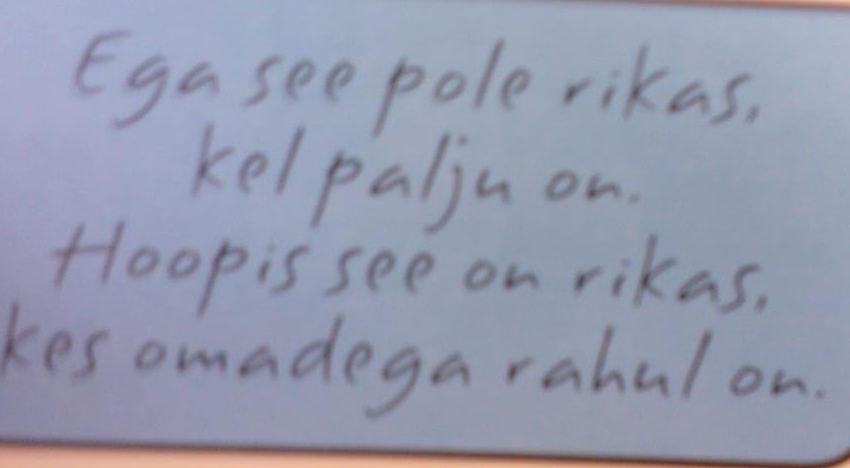 Ega see pole rikas,
kel palju on.
Hoopis see on rikas,
kes omadega rahul on.